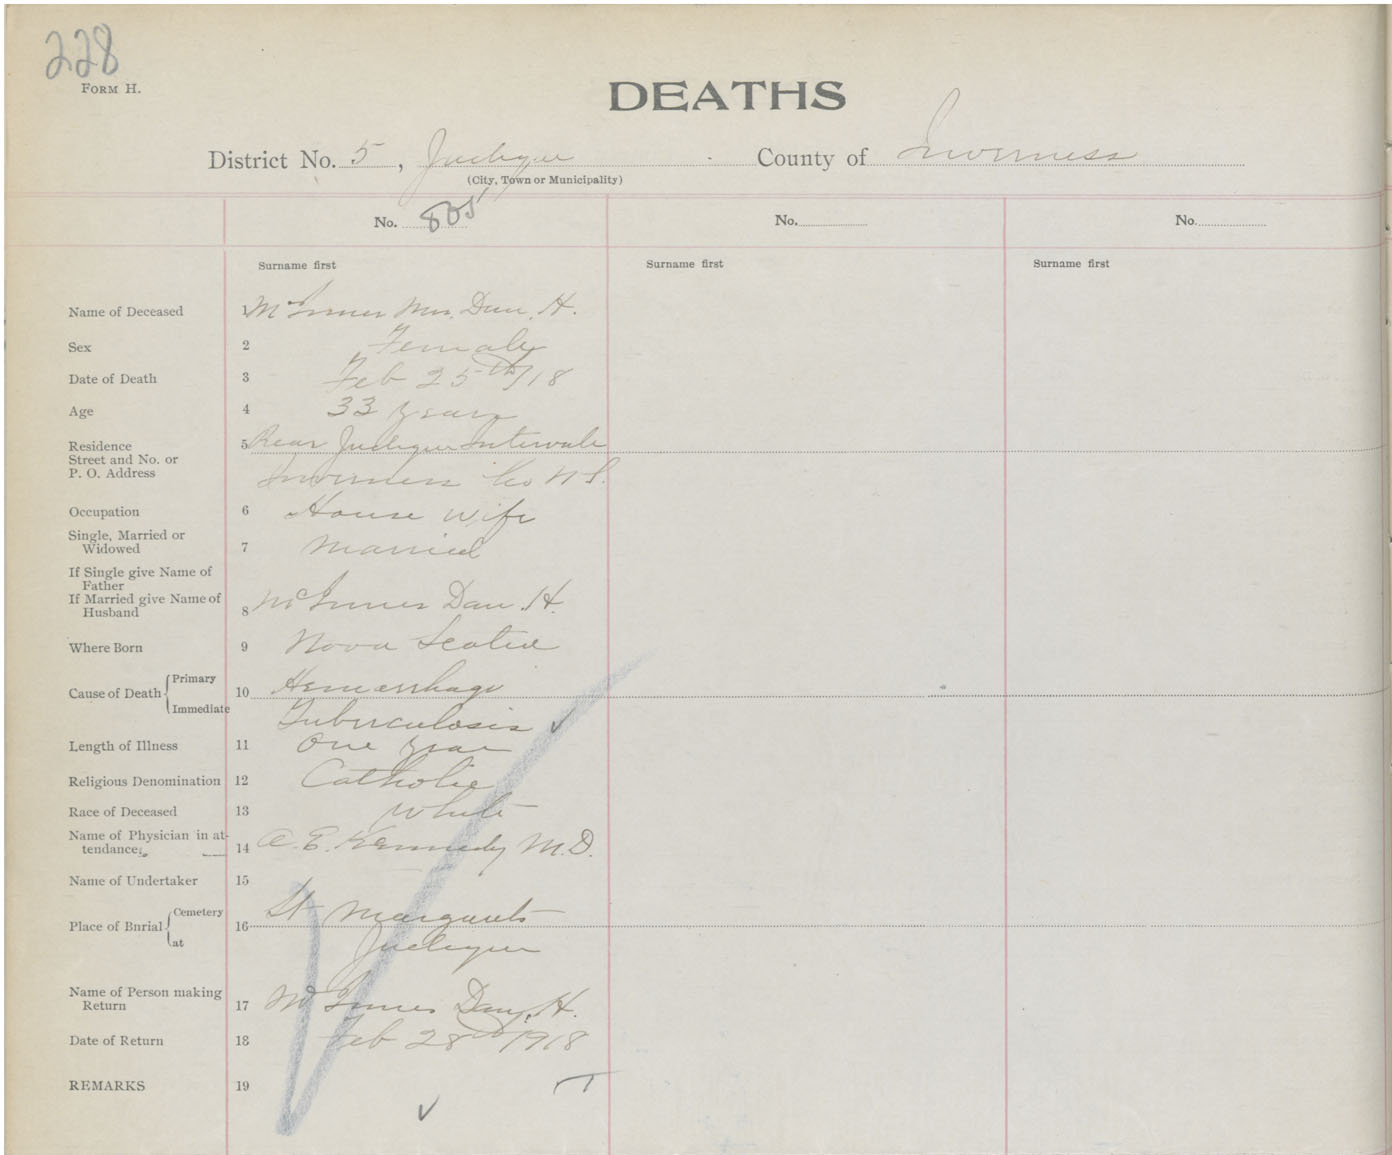 228
FORM H.
DEATHS
District No. 5, Judique County of Inverness
(City, Town or Municipality)
No. 805 No. No.
Surname first Surname first Surname first
Name of Deceased 1 McInnes Mrs. Dan. H.
Sex 2 Female
Date of Death 3 Feb 25th/18
Age 4 33 years
Residence 5 Rear Judique Intervale
Street and No. or
P. O. Address Inverness Co N S.
Occupation 6 House wife
Single, Married or
Widowed 7 Married
If Single give Name of
Father
If Married give Name of
Husband 8 McInnes Dan. H.
Where Born 9 Nova Scotia
Cause of Death Primary 10 Hemorrhage
Immediate Tuberculosis
Length of Illness 11 One year
Religious Denomination 12 Catholic
Race of Deceased 13 White
Name of Physician in at-
tendance 14 A. E. Kennedy M.D.
Name of Undertaker 15
Place of Bnrial Cemetery 16 St Margarets
at Judique
Name of Person making
Return 17 McInnes Dan. H.
Date of Return 18 Feb 28th 1918
REMARKS 19